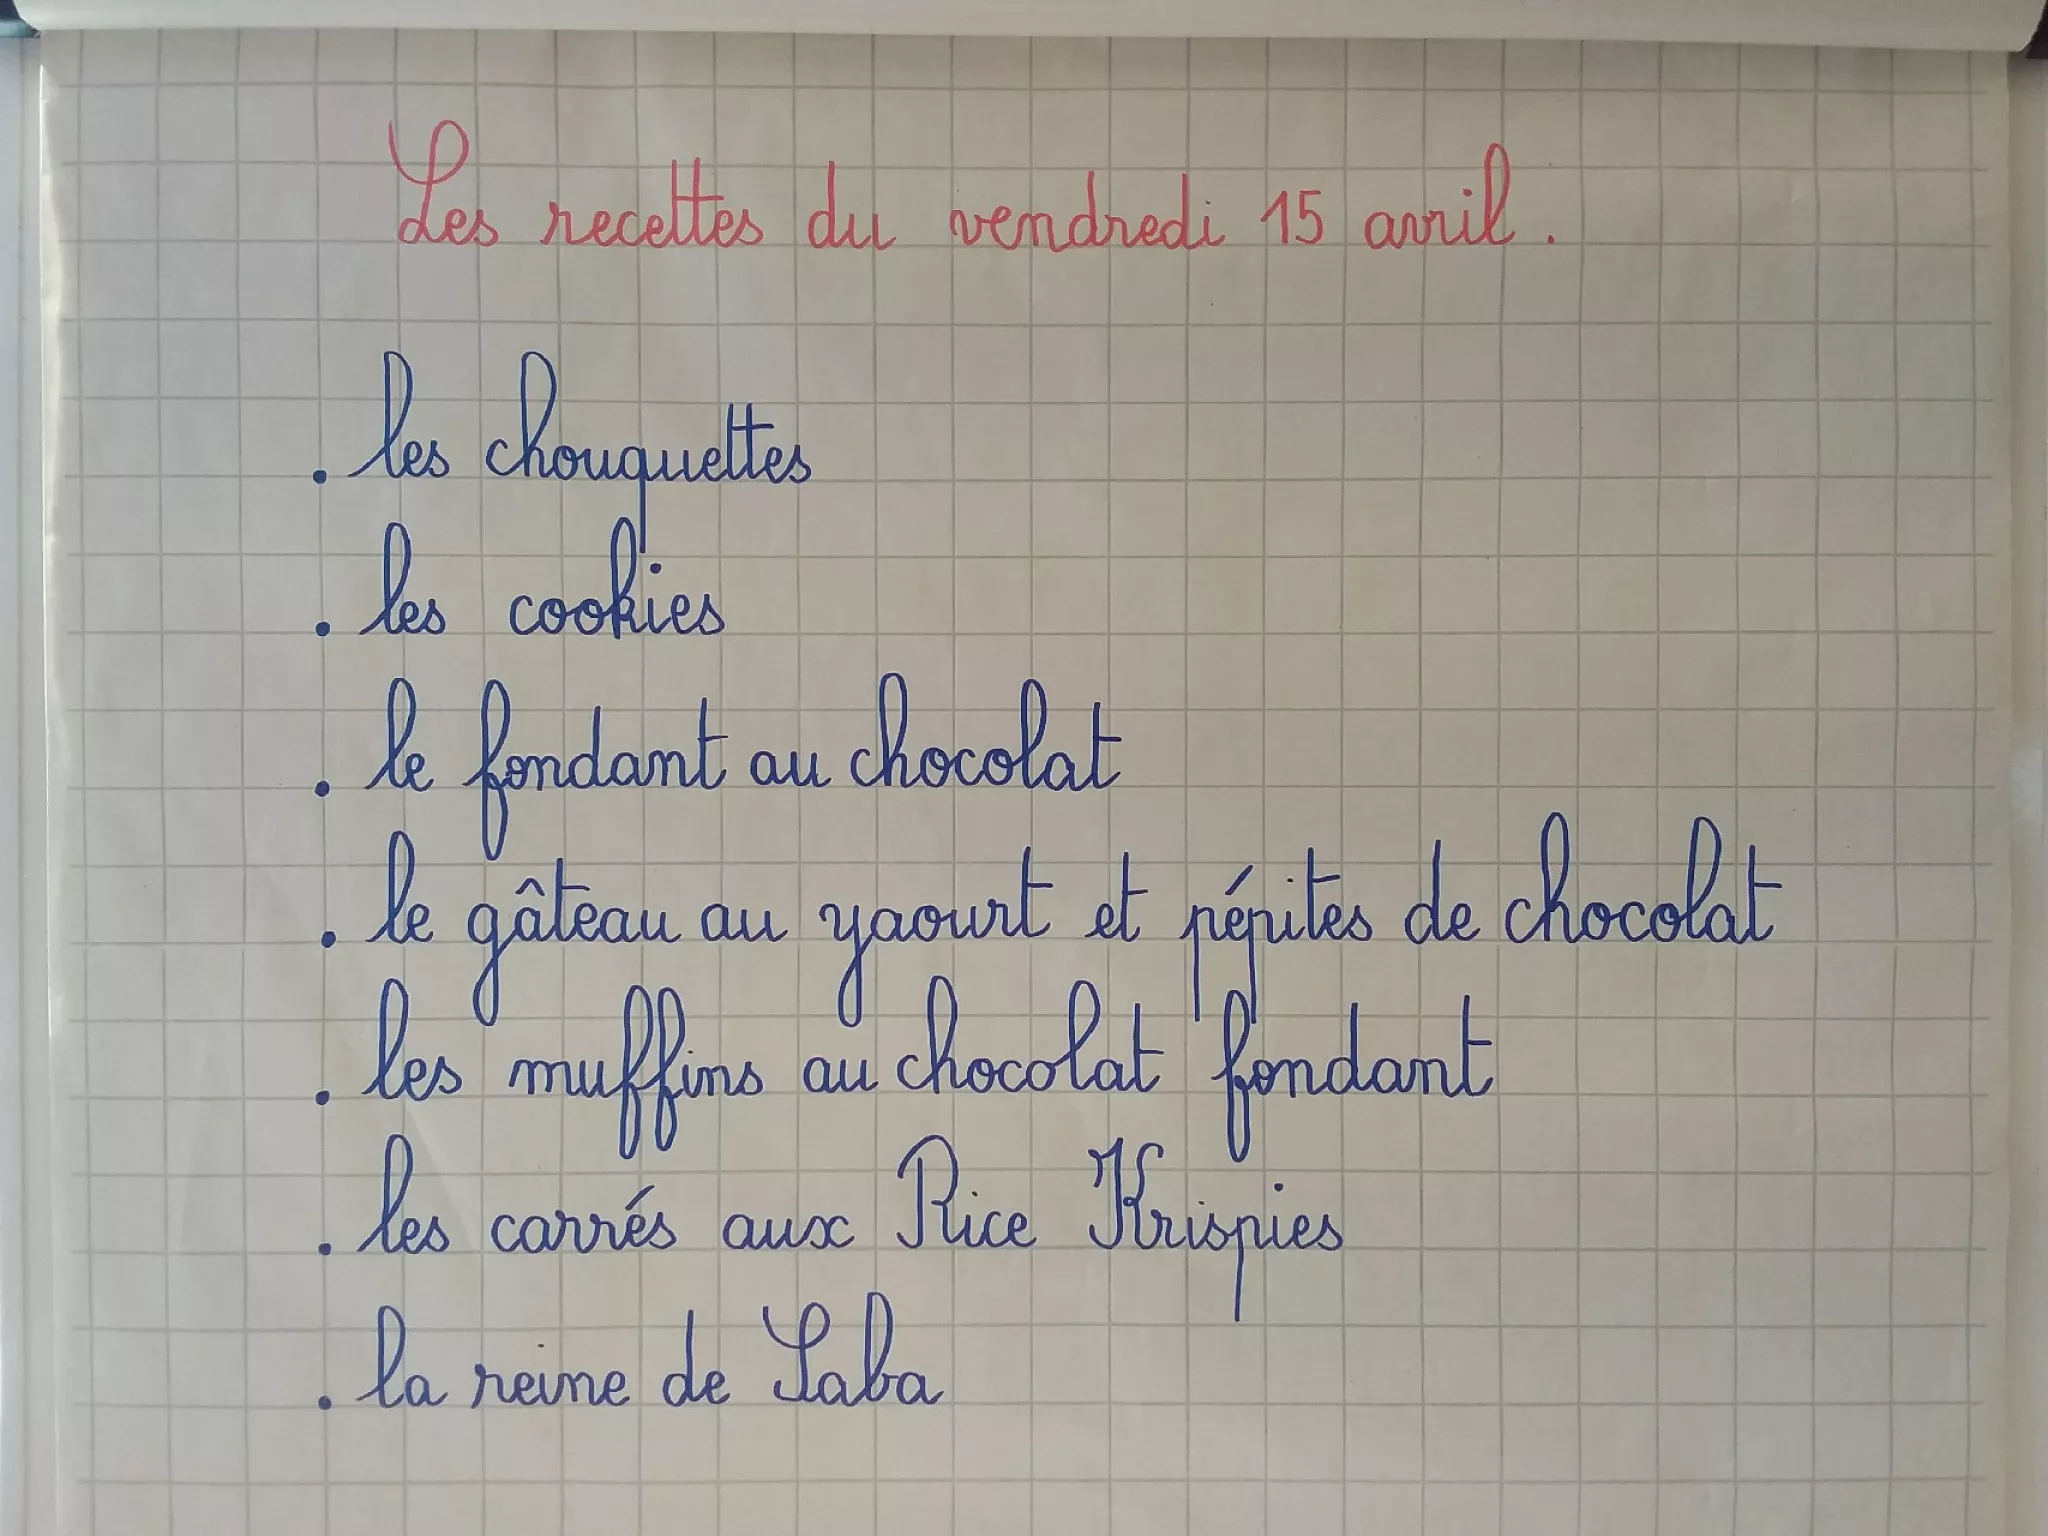 Les recettes du vendredi 15 avril.
. les chouquettes
. les cookies
. le fondant au chocolat
. le gâteau au yaourt et pépites de chocolat
. les muffins au chocolat fondant
. les carrés aux Rice Krispies
. la reine de Saba